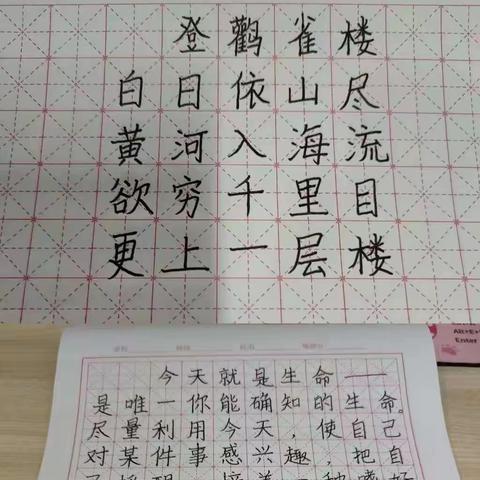 登鹳雀楼
白日依山尽
黄河入海流
欲穷千里目
更上一层楼
Alt+E+
Enter
今天就是生命——
是唯一你能确知的生命。
尽量利用今天，使自己
对某件事感兴趣，把自